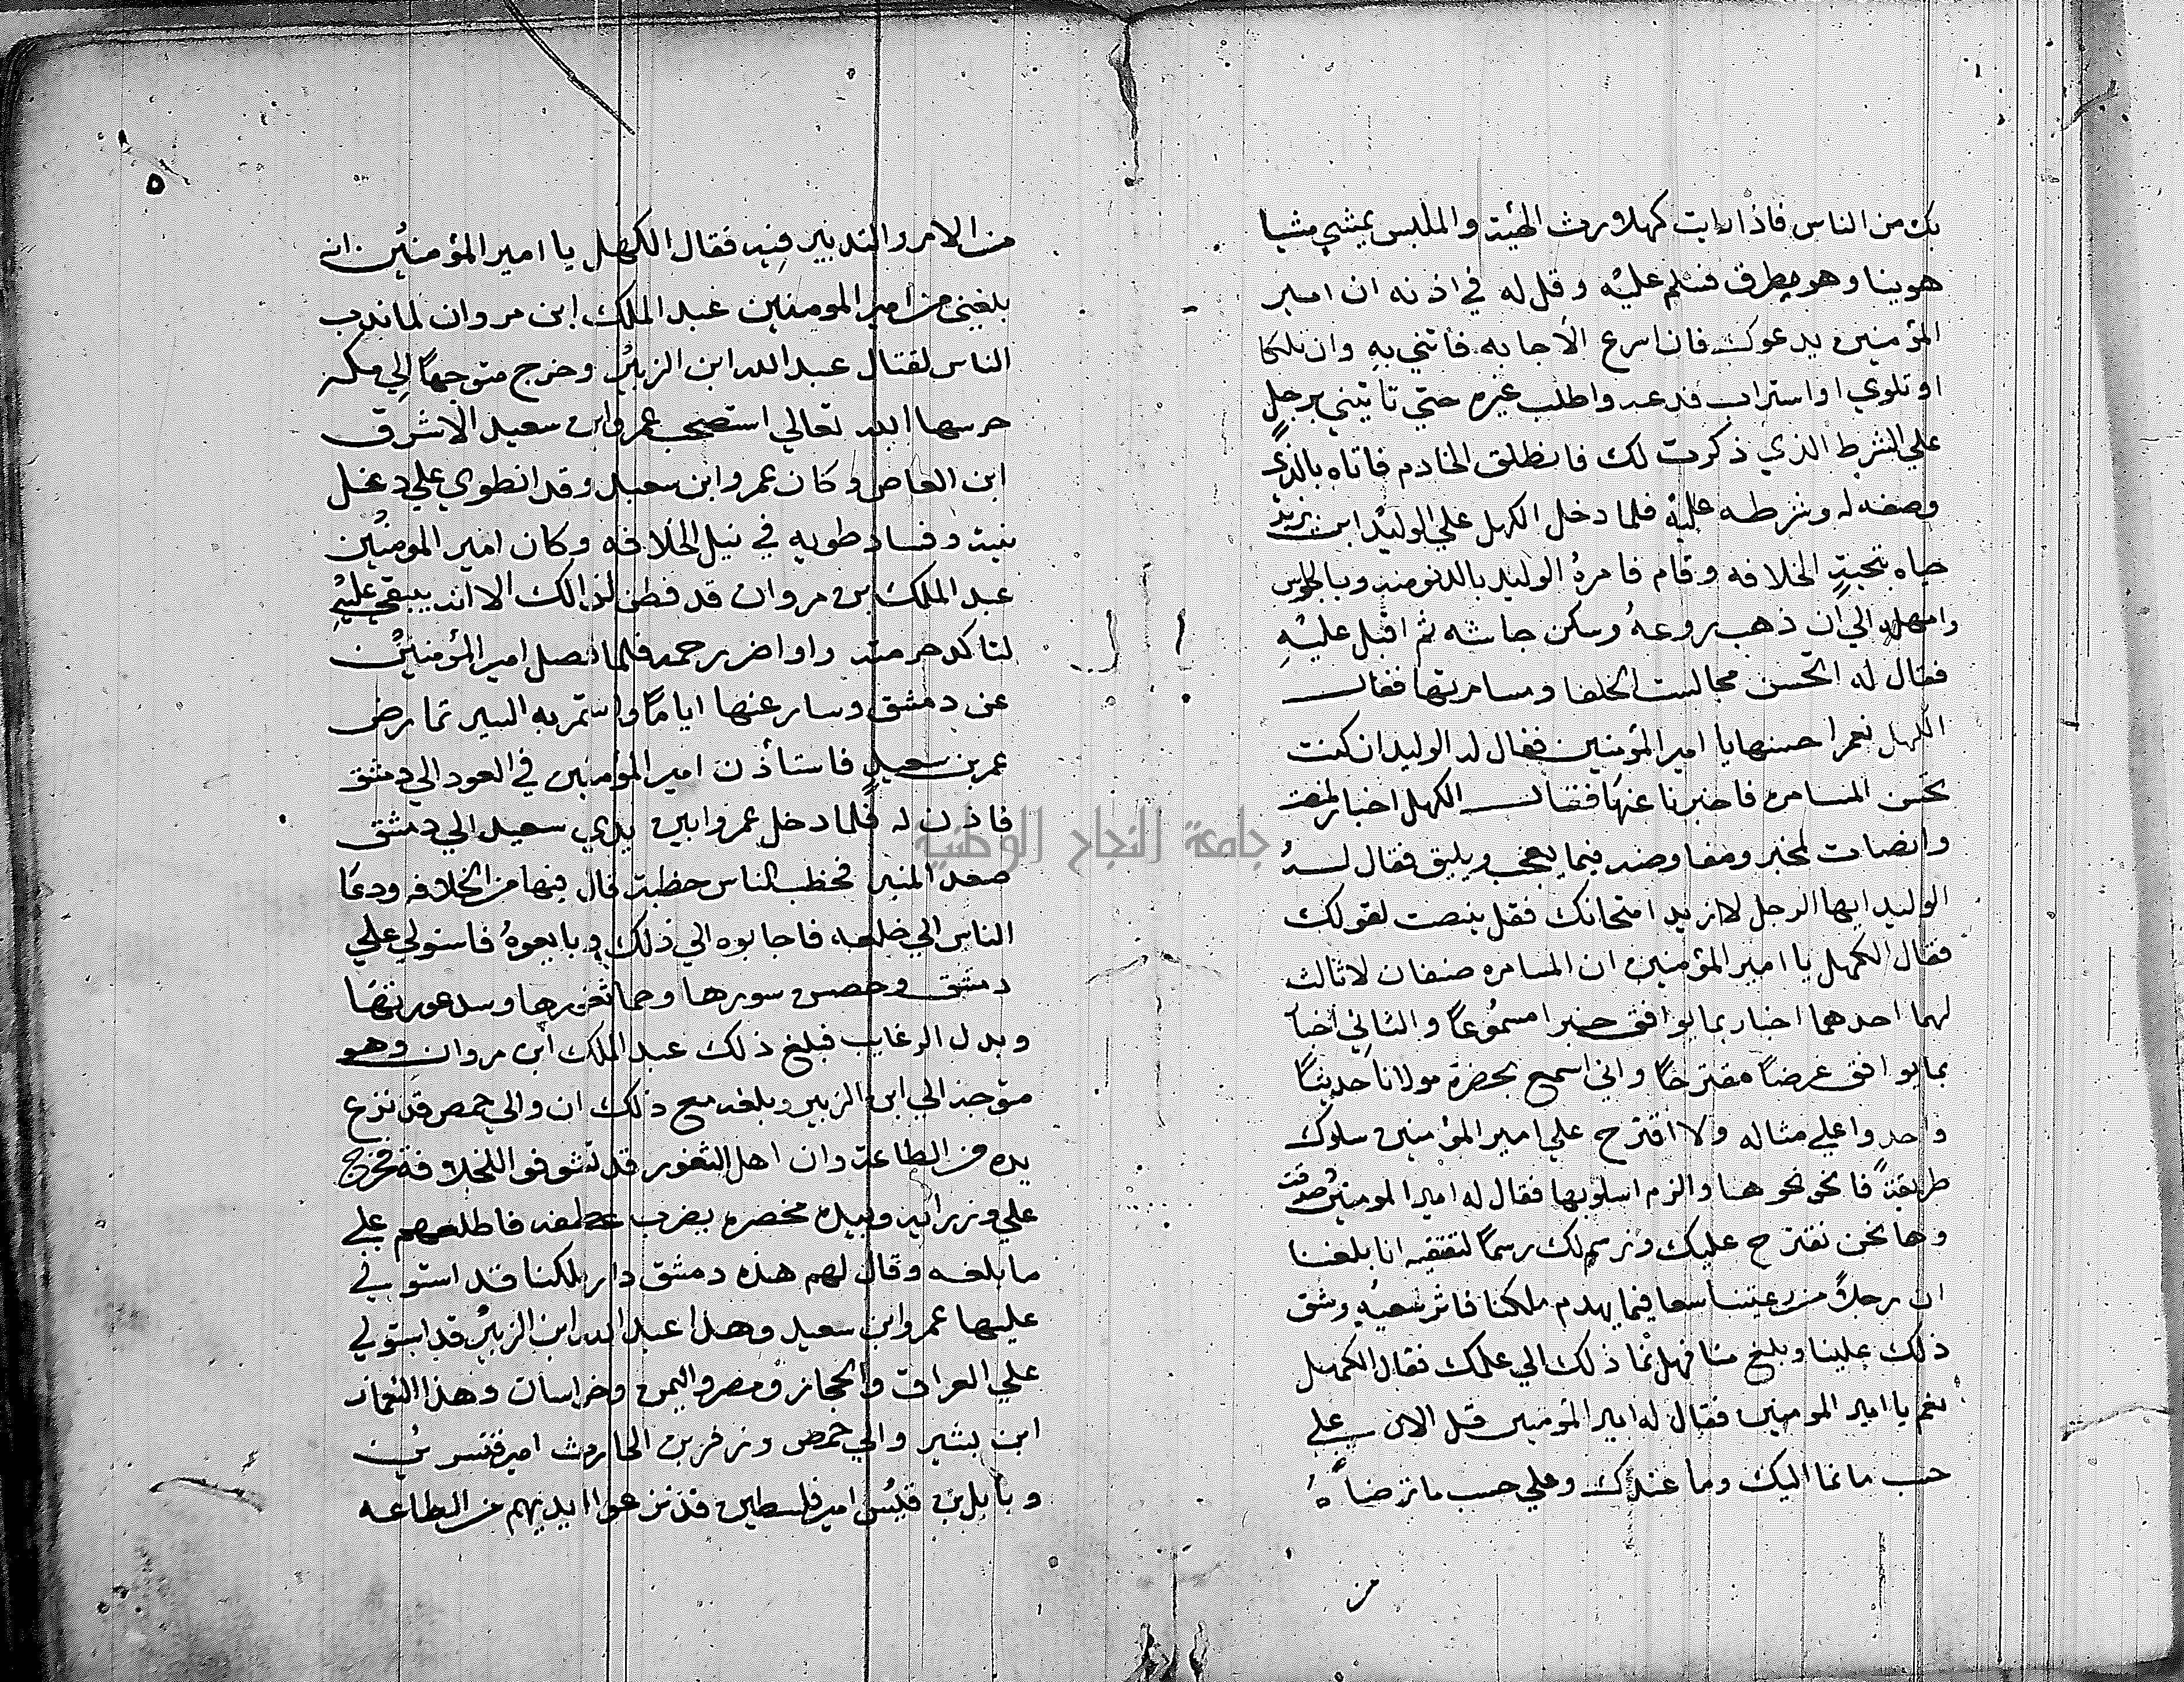 بك من الناس فاذا رايت كهلا ورث الهيئة والملبس يمشي مشيا
هوينا وهو مطرف فسلم عليه وقل له في اذنه ان امير
المؤمنين يدعوك فان اسرع الاجابه فأتني به وان تلكا
او تلوي او استراب فدعه واطلب غيره حتي تاتيني برجل
علي الشرط الذي ذكرت لك فانطلق الخادم فاتاه بالذي
وصفه له وشرطه عليه فلما دخل الكهل علي الوليد ابن يزيد
حياه بتحية الخلافه وقام فامره الوليد بالدنو منه وبالجلوس
وامهله الي ان ذهب روعه وسكن جاشه ثم اقبل عليه
فقال له اتحسن مجالست الخلفا ومسامرتها فقال
الكهل نعم احسنها يا امير المؤمنين فقال له الوليد ان كنت
تحسن المسامره فاخبرنا عنها فقال الكهل اخبار لمنصت
وانصات لمخبر ومفاوضه فيما يعجب ويليق فقال له
الوليد ايها الرجل لا ازيد امتحانك فقل ينصت لقولك
فقال الكهل يا امير المؤمنين ان المسامره صنفان لا ثالث
لهما احدهما اخبار بما يوافق خبرا مسموعا والثاني اخبا
بما يوافق غرضا مقترحا واني اسمع بحضرة مولانا حديثا
واحدوا علي مثاله ولا اقترح علي امير المؤمنين سلوك
طريقة فانحو نحوها والزم اسلوبها فقال له امير المومنين صدقت
وها نحن نقترح عليك ونرسم لك رسما لتقتفيه انا بلغنا
ان رجلا من رعيتنا سعا فيما يهدم ملكنا فاثر سعيه وشق
ذلك علينا وبلغ منا فهل نما ذلك الي علمك فقال الكهل
نعم يا امير المومنين فقال له امير المؤمنين قل الان علي
حسب ما نما اليك وما عندك وعلي حسب ما ترضا
من
٥
من الامر والتدبير فيه فقال الكهل يا امير المؤمنين اني
بلغني من امير المومنين عبد الملك ابن مروان لما ندب
الناس لقتال عبد الله ابن الزبير وخرج متوجها الي مكه
حرسها الله تعالي استصحب عمروا بن سعيد الاشرق
ابن العاص وكان عمروا بن سعيد وقد انطوي علي دغل
نية وفساد طويه في نيل الخلافه وكان امير المومنين
عبد الملك بن مروان قد فطن لذالك الا انه يبقي عليه
لتاكد حرمته واواضر رحمه فلما فصل امير المؤمنين
عن دمشق وسار عنها اياما واستمر به السير تمارض
عمر بن سعيد فاستأذن امير المؤمنين في العود الي دمشق
فاذن له فلما دخل عمروا بن سعيد الي دمشق
صعد المنبر فخطب الناس خطبة قال فيها من الخلافه ودعا
الناس الي خلعه فاجابوه الي ذلك وبايعوه فاستولي علي
دمشق وحصن سورها وحما ثغورها وسد عورتها
وبدل الرغايب فبلغ ذلك عبد الملك ابن مروان وهو
متوجه الي ابن الزبير وبلغه مع ذلك ان والي حمص قد نزع
يده من الطاعة وان اهل الثغور قد تشوفوا للخلافة فخرج
علي وزرايه وبيده مخصره يضرب عطفه فاطلعهم علي
ما بلغه وقال لهم هذه دمشق دار ملكنا قد استولي
عليها عمروا بن سعيد وهذا عبد الله ابن الزبير قد استولي
علي العراق والحجاز ومصر واليمن وخراسان وهذا النعمان
ابن بشير والي حمص وزفر بن الحارث امير قنسرين
وبابل بن قيس امير فلسطين قد نزعوا ايديهم من الطاعه
جامعة النجاح الوطنية